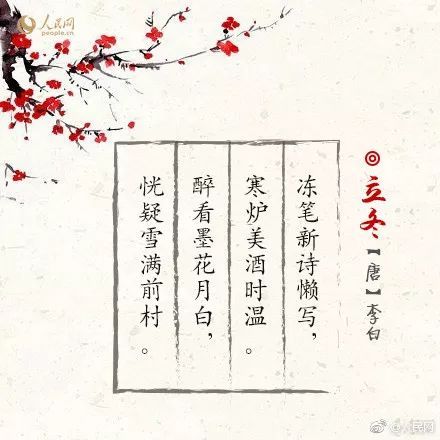 人民网
people.cn
立冬
【唐】李白
冻笔新诗懒写，
寒炉美酒时温。
醉看墨花月白，
恍疑雪满前村。
@人民网